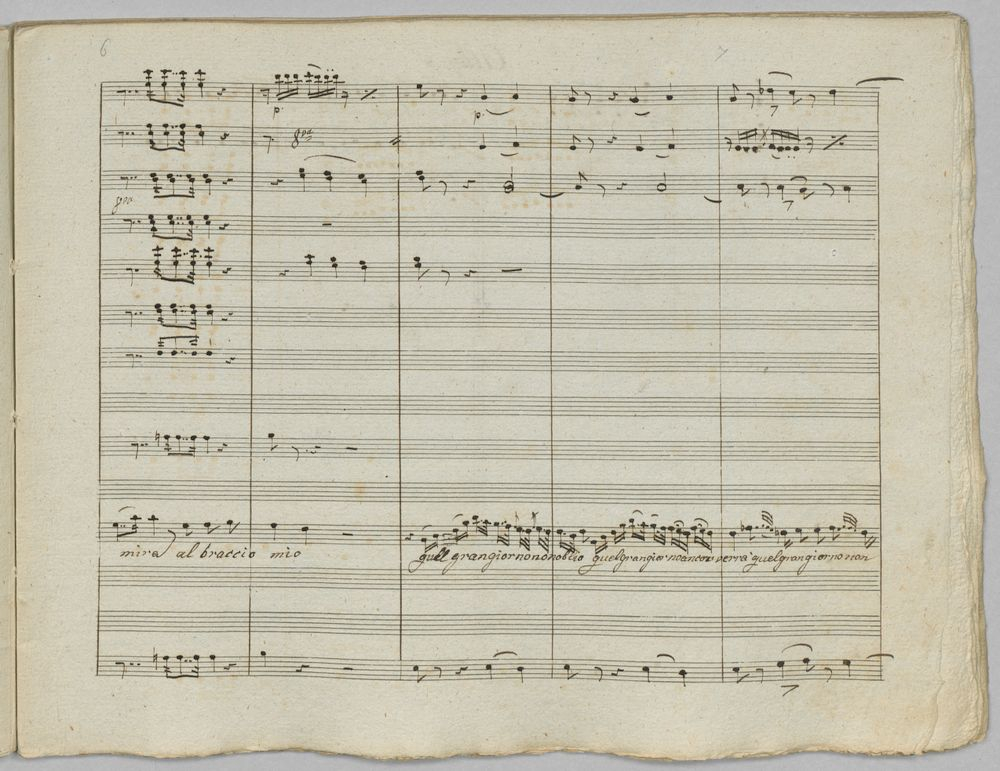 6
p.
p.
8va
8va
mira al braccio mio
quel gran giorno no no oblio quel gran giorno ancor verrà quel gran giorno non